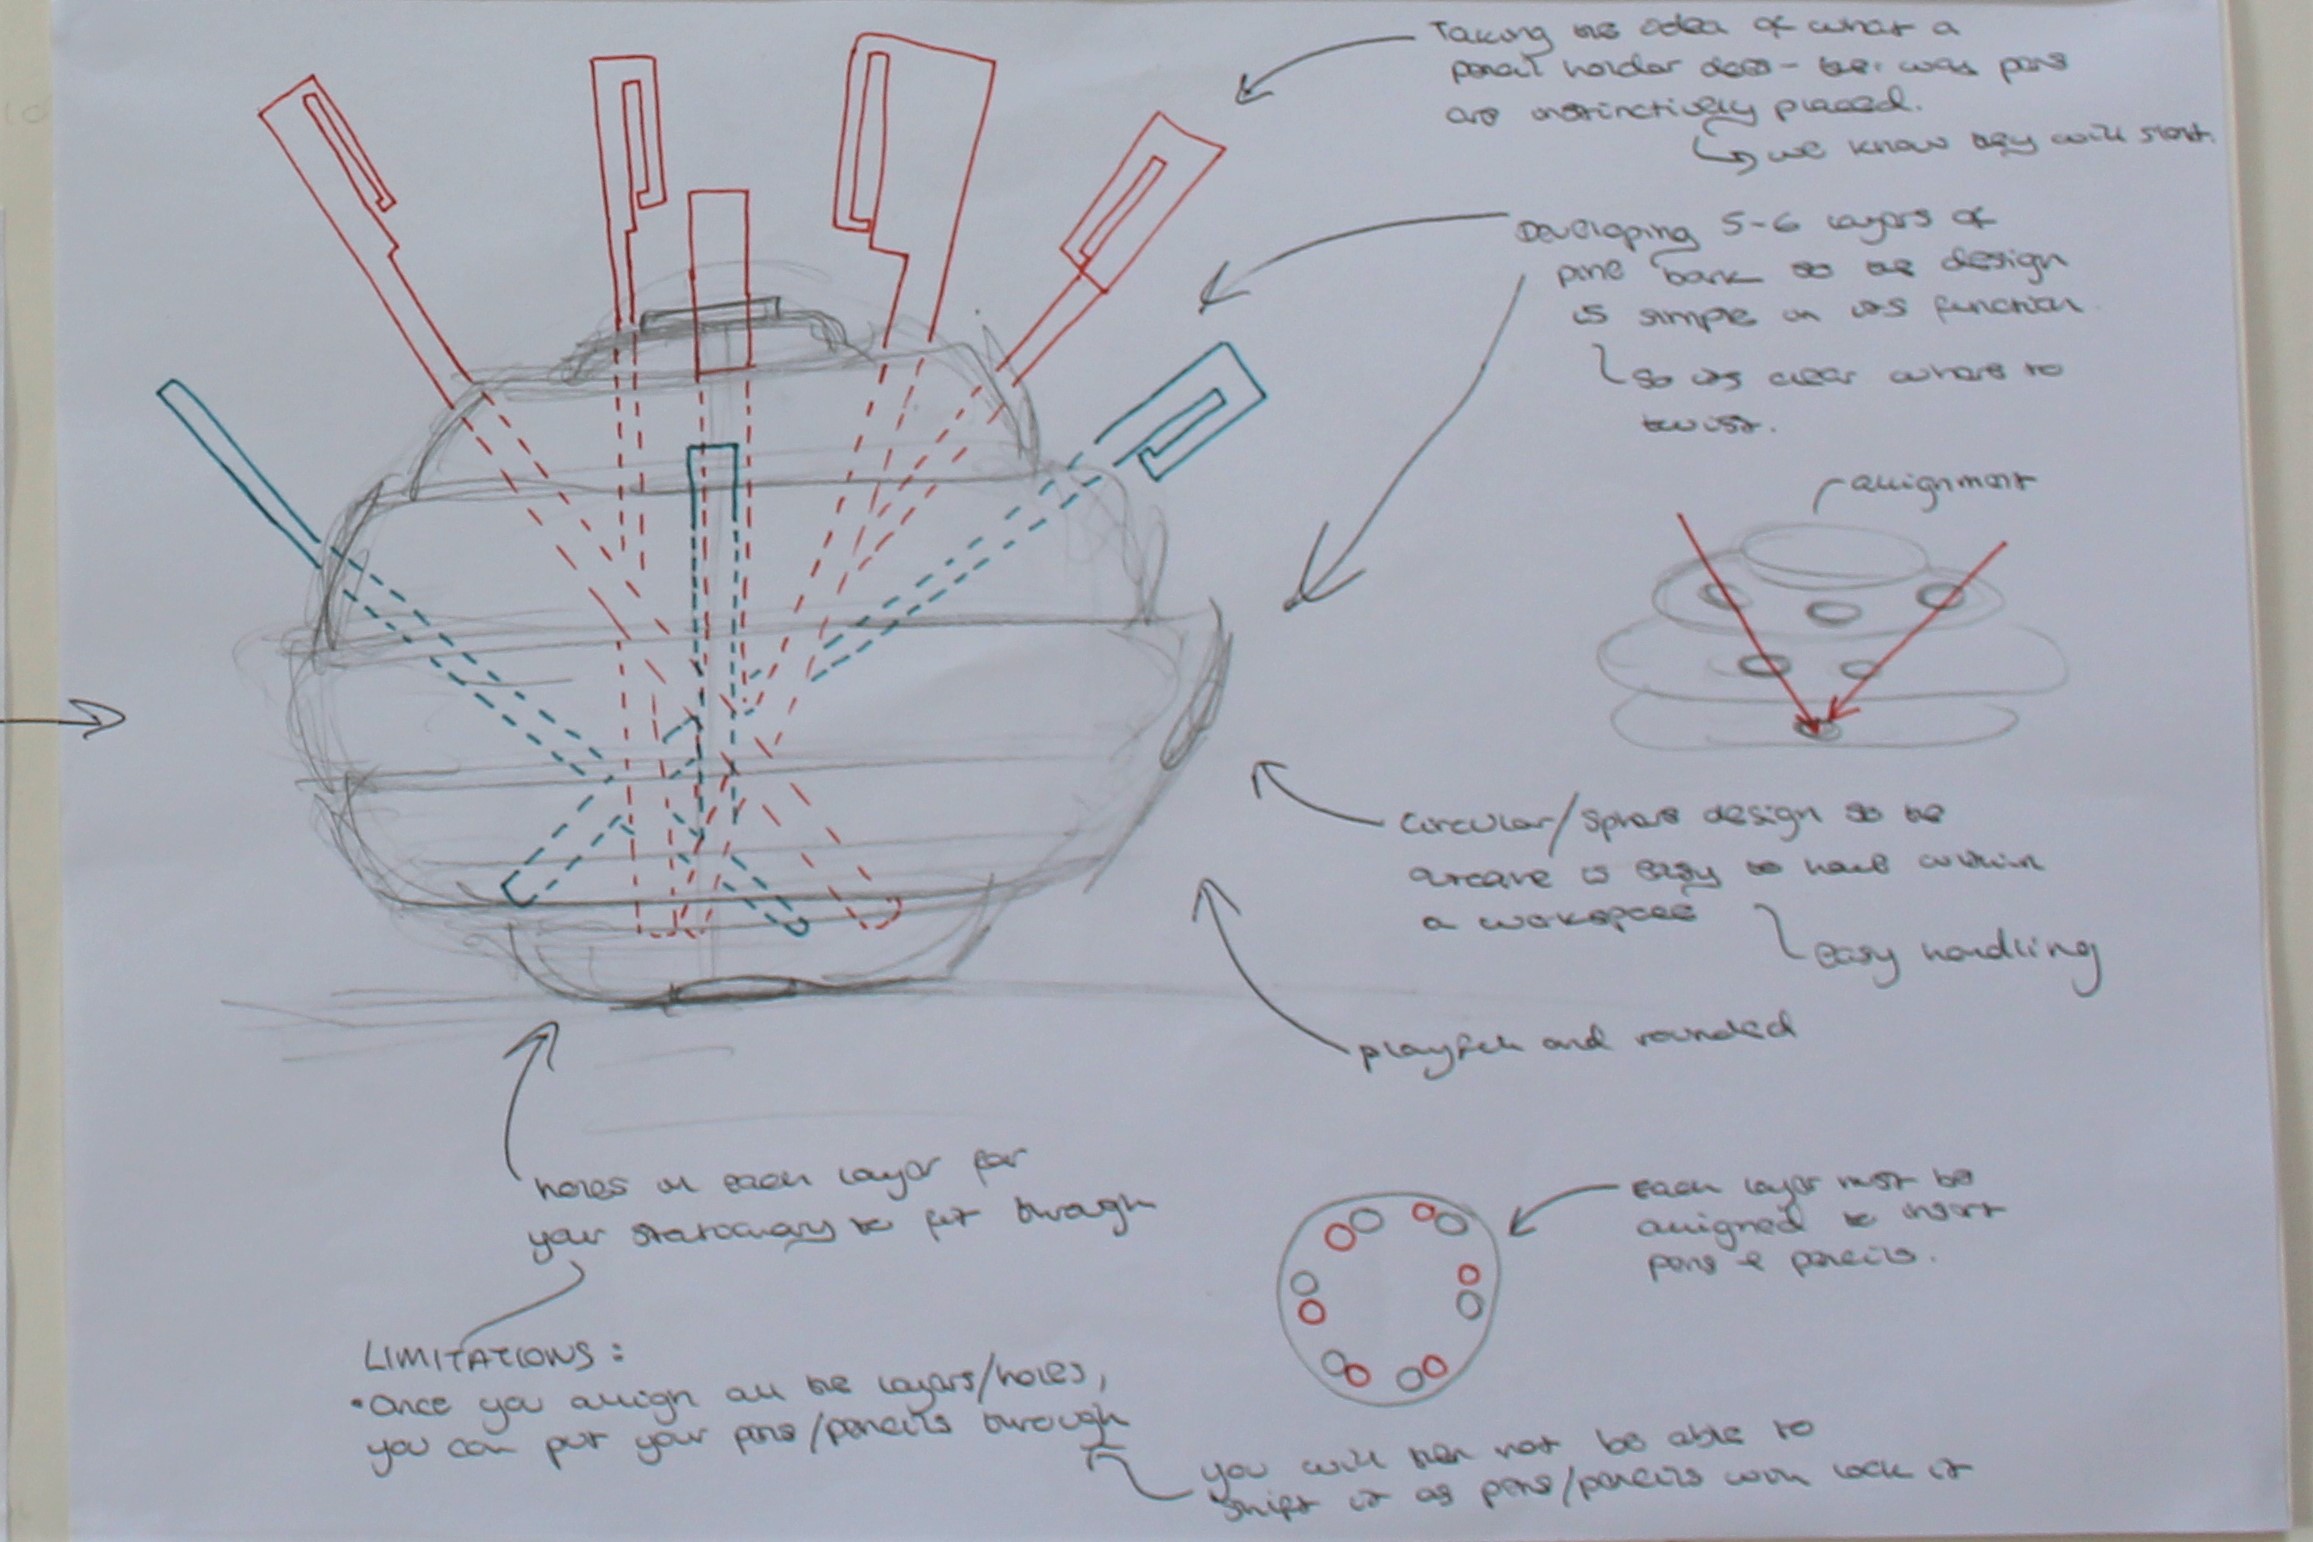 Taking the idea of what a
pencil holder does - the way pens
are instinctively placed.
we know they will slant.
Developing 5-6 layers of
pine bark so the design
is simple in its function
so its clear where to
twist.
allignment
Circular/Sphere design so the
is easy to have within
a workspace
easy handling
playful and rounded
holes in each layer for
your stationary to fit through
each layer must be
alligned to insert
pens & pencils.
LIMITATIONS:
•Once you allign all the layers/holes,
you can put your pens/pencils through
you will then not be able to
shift it as pens/pencils with lock it